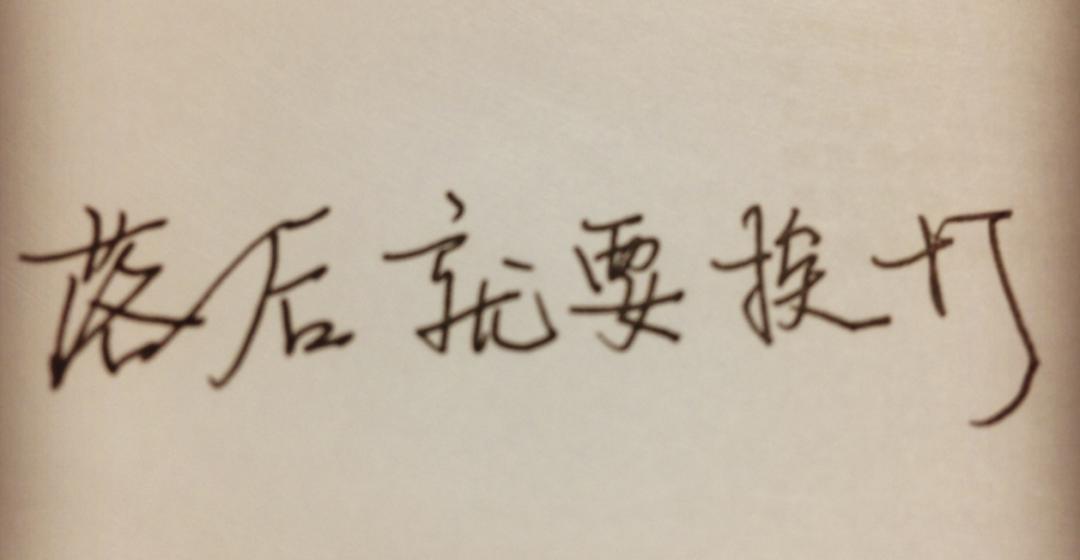 落后就要挨打